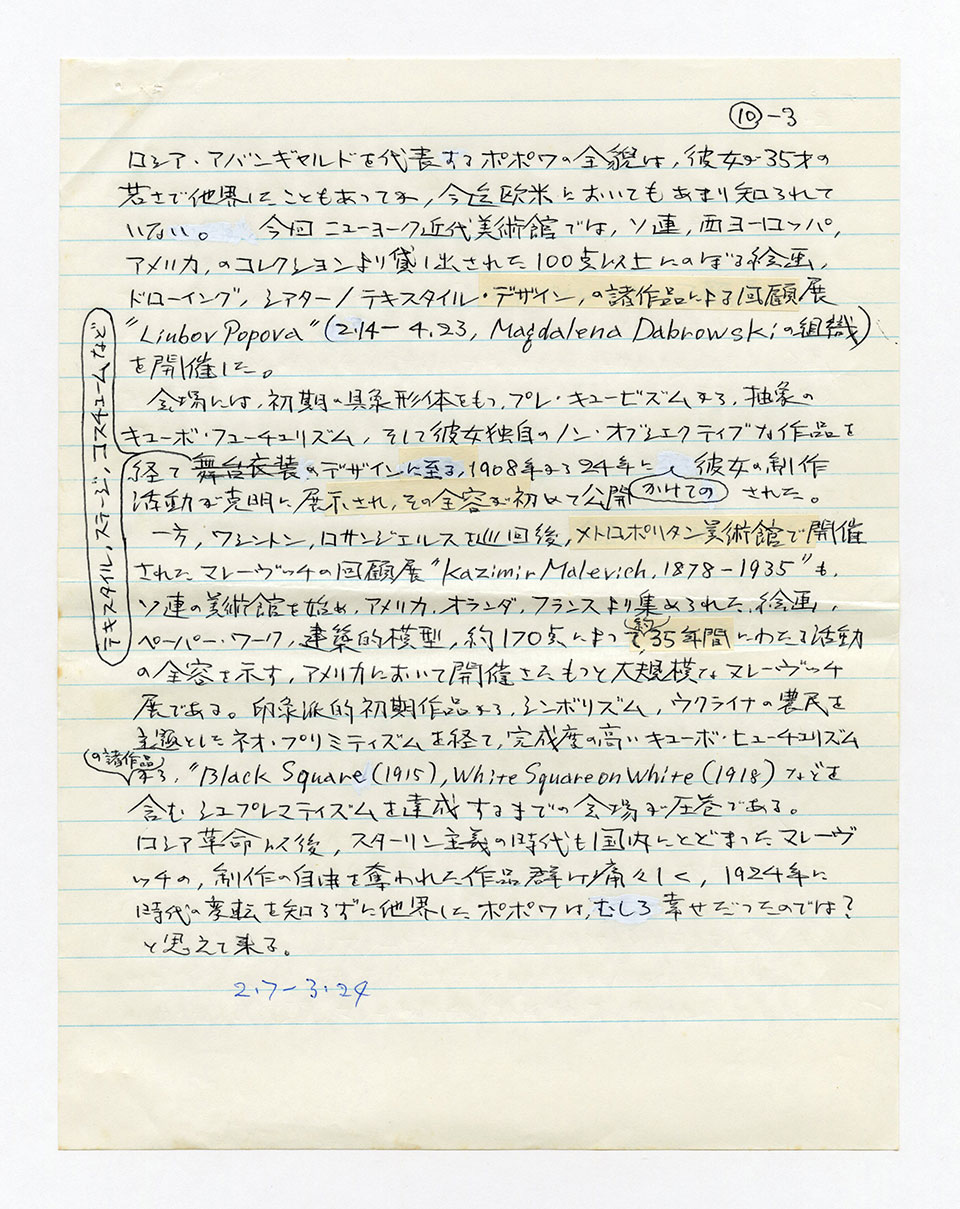 ⑩-3
ロシア・アバンギャルドを代表するポポワの全貌は，彼女が35才の
若さで他界したこともあってか，今迄欧米においてもあまり知られて
いない。 今回 ニューヨーク近代美術館では，ソ連，西ヨーロッパ，
アメリカ，のコレクションより貸し出された100点以上にのぼる絵画，
ドローイング，シアター/テキスタイル・デザイン，の諸作品による回顧展
"Liubov Popova"(2.14－4.23, Magdalena Dabrowskiの組織)
を開催した。
会場には，初期の具象形体をもつ，プレ・キュービズムから，抽象の
キューボ・フューチュリズム，そして彼女独自のノン・オブジェクティブな作品を
経て 舞台衣装のデザインに至る，1908年から24年に 彼女の制作
テキスタイル，ステージ，コスチュームなど
活動が克明に展示され，その全容が初めて公開 された。
かけての
一方，ワシントン，ロサンジェルスを巡回後，メトロポリタン美術館で開催
されたマレーヴッチの回顧展"Kazimir Malevich, 1878－1935"も，
ソ連の美術館を始め，アメリカ，オランダ，フランスより集められた，絵画，
ペーパー・ワーク，建築的模型，約170点によって，35年間にわたる活動
約
の全容を示す，アメリカにおいて開催されたもっと大規模なマレーヴッチ
展である。印象派的初期作品から，シンボリズム，ウクライナの農民を
主題としたネオ・プリミティズムを経て，完成度の高いキューボ・ヒューチュリズム
の諸作品
から，"Black Square(1915), White Square on White(1918)などを
含むシュプレマティズムを達成するまでの会場が圧巻である。
ロシア革命以後，スターリン主義の時代も国内にとどまったマレーヴ
ッチの，制作の自由を奪われた作品群は痛々しく，1924年に
時代の変転を知らずに他界したポポワは，むしろ幸せだったのでは？
と思えて来る。
2.7－3.24